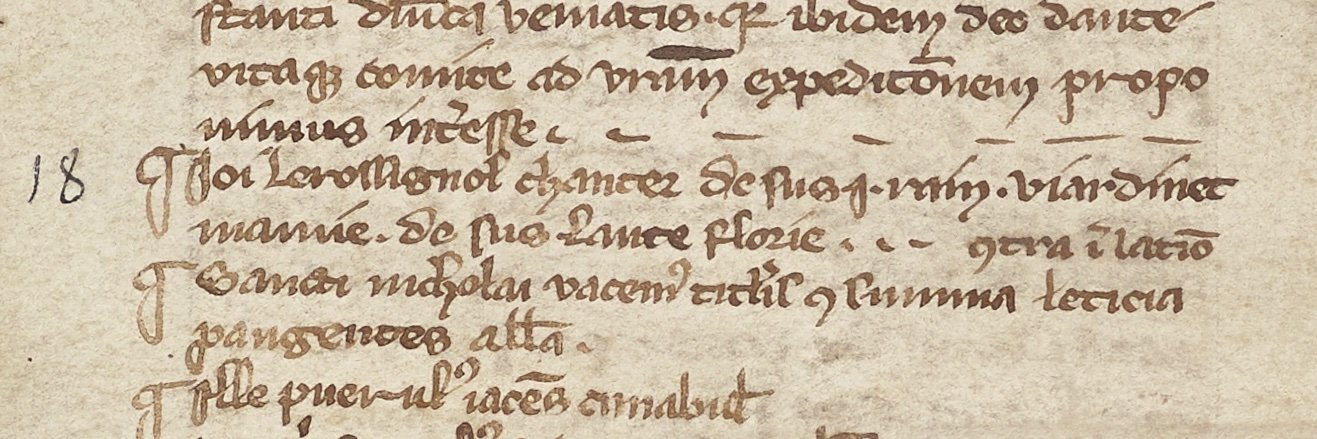 stanti diuicta veniatis. qr ibidem deo dante
vitaqȝ comite ad vr̄am expeditōnem propo
nimus int̓esse.
18 ¶ Joi lerossignol chanter de sus .i. rain . viardinet
mamie . de sus lante florie . . . ꝯtra ī latiō
¶ Sancti nicholai vacemꝰ titul̓ ꝯ summa leticia
pangentes all̄a .
¶ Ille puerulꝰ iacēs cunabul̓